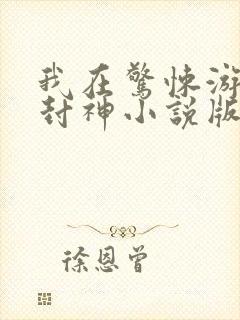 我在驚悚游
封神小說版
徐恩曾